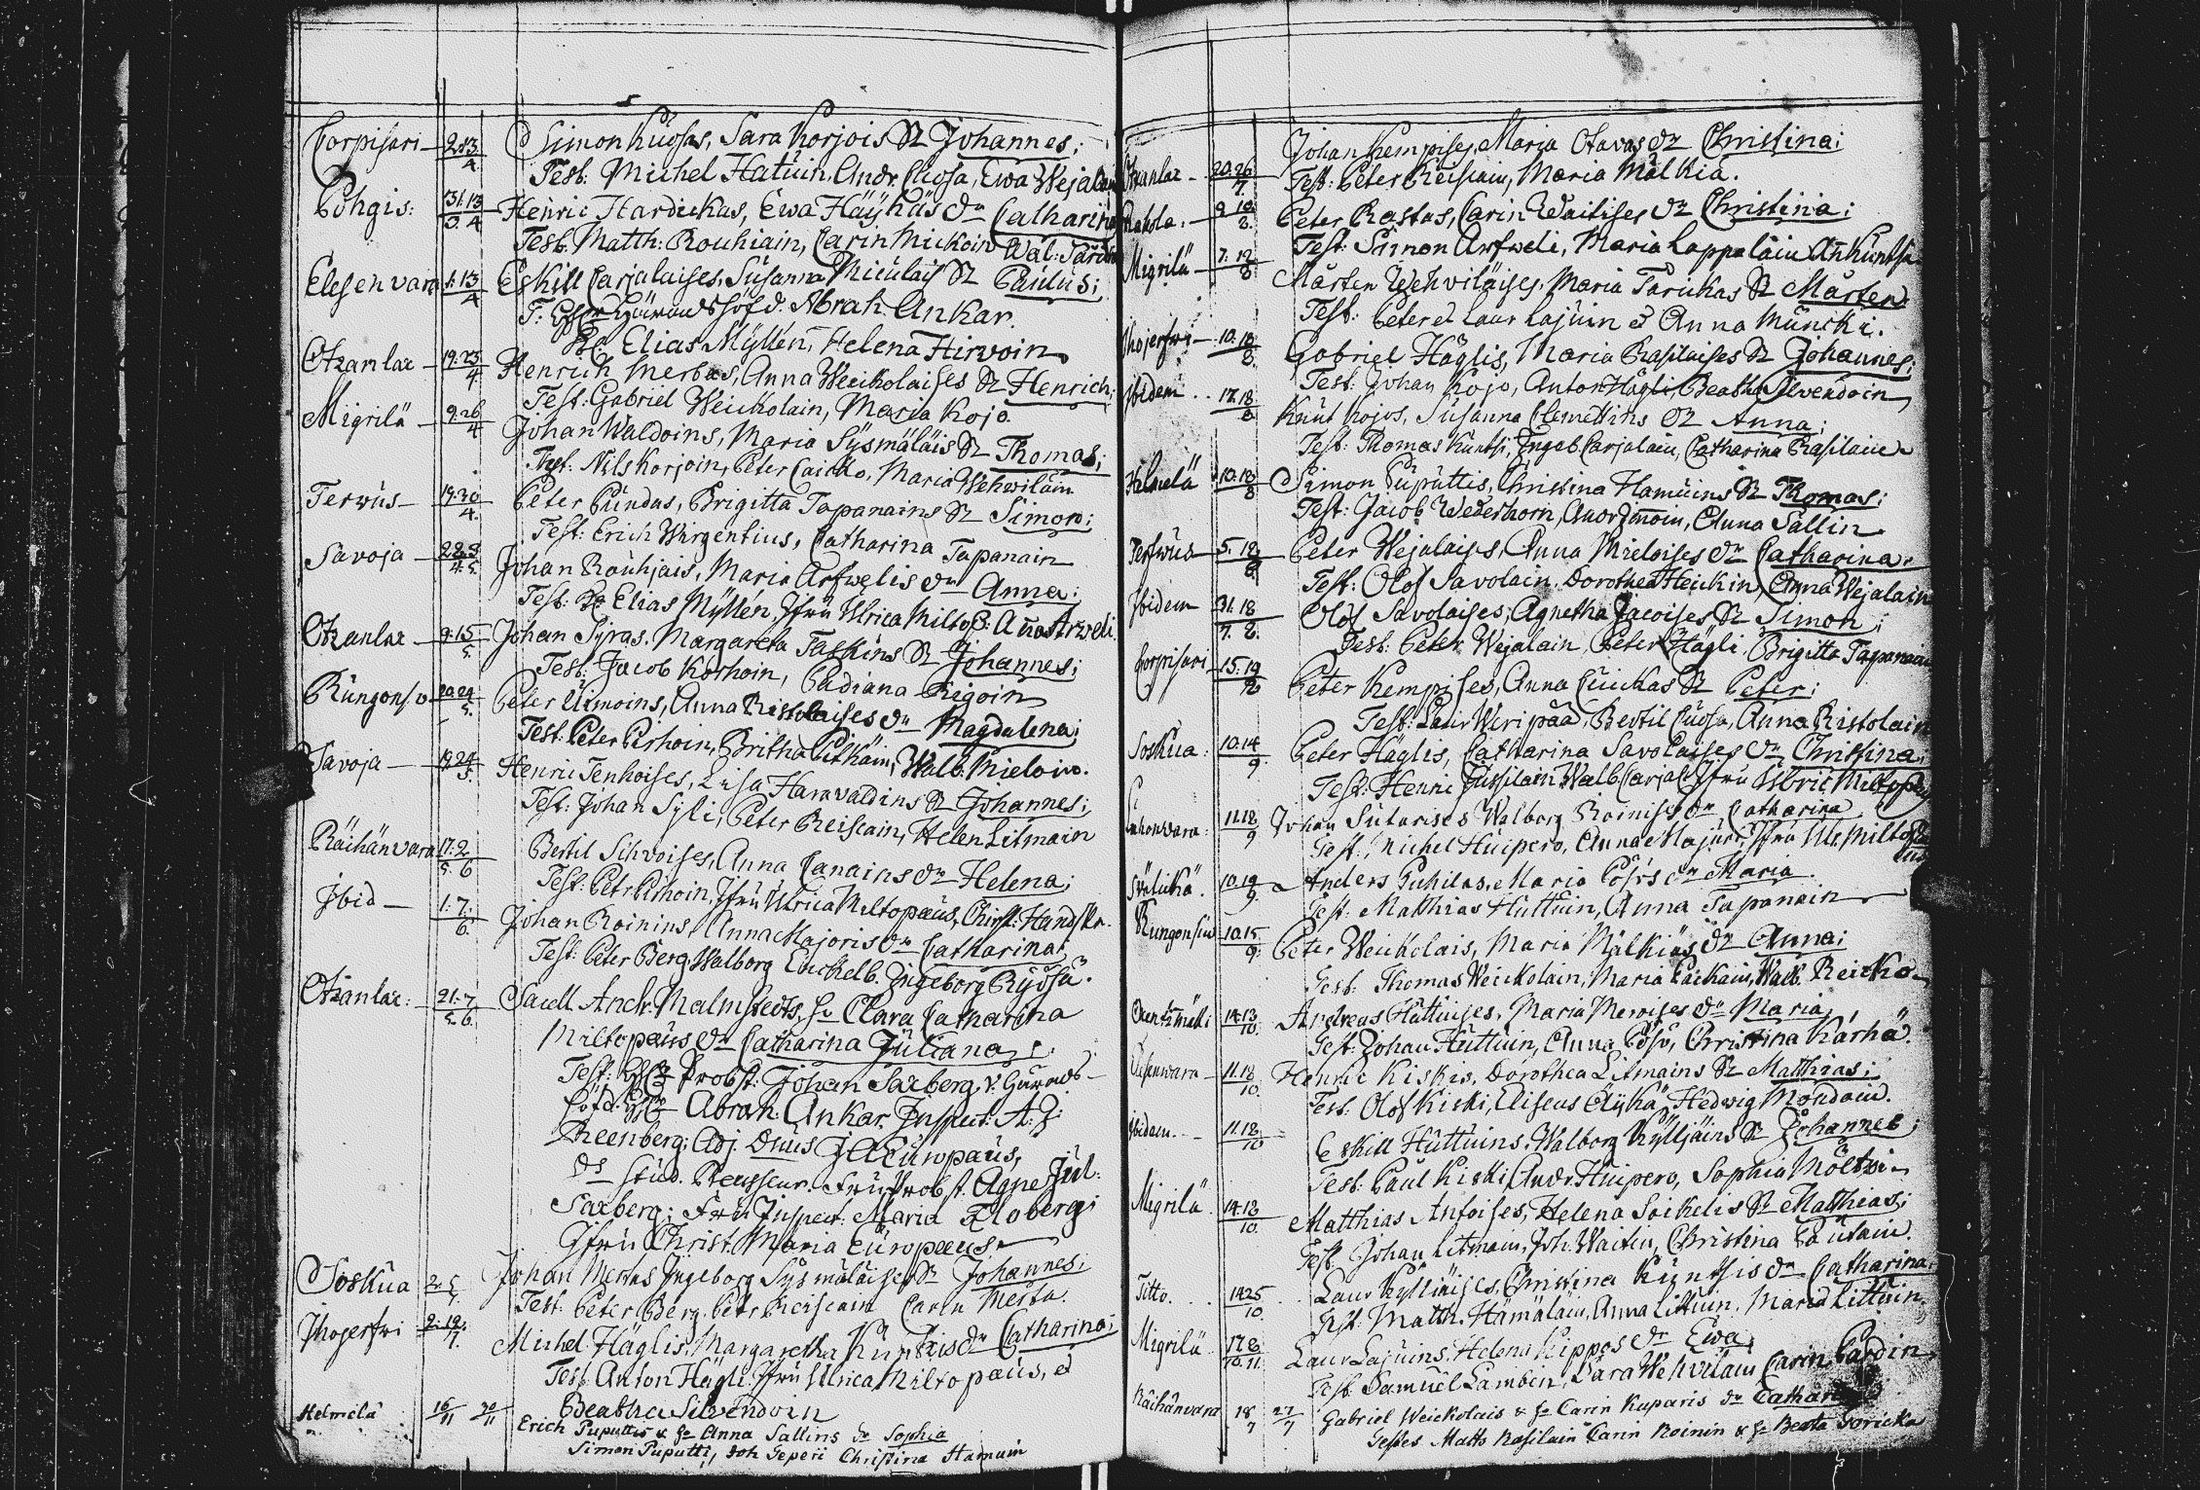 Corpisari 2.13/4 Simon Kuosas, Sara Korjois Sn Johannes;
Test: Michel Hatuin, Andr. Kuosa, Ewa Wejalain
Pohgis: 31.13/3.4 Henric Hardickas, Ewa Häyhäs dr Catharina
Test. Matth: Rouhiain, Carin Mickoin Wal:
Elesenvara 1.13/4 Eskill Carjalaises, Susanna Miculais Sn Paulus;
T: Häradshöfd. Abrah. Ankar.
Elias Myllén, Helena Hirvoin
Otzanlax 19.23/4 Henrich Mertas, Anna Weickolaises Sn Henrich;
Test: Gabriel Weickolain, Maria Kojo.
Migrilä 9.26/4 Johan Waldoins, Maria Sysmäläis Sn Thomas;
Test: Nils Korjoin, Peter Caicko, Maria Wehwiläin
Terwus 19.30/4 Peter Pündas, Brigitta Tapanains Sn Simon;
Test: Erich Wirgentius, Catharina Tapanain
Savoja 28.3/4.5 Johan Rouhjais, Maria Arfwelis dr Anna;
Test: Elias Myllén, Jfru Ulrica Milto: Anna Arweli.
Otzanlax 9.15/5 Johan Syras, Margareta Taskins Sn Johannes;
Test: Jacob Korhoin, Rigoin
Rungonso 20.24/5 Peter Uimoins, Anna Ristolaises dr Magdalena;
Test: Peter Pirhoin, Britha Pitkäin, Walb. Mieloin.
Savoja 19.24/5 Henric Tenhoises, Lisa Hamvaldins Sn Johannes;
Test: Johan Syli, Peter Reiscain, Helen Litmain
Räihänvara 17.2/5.6 Bertil Sihvoises, Anna Canains dr Helena;
Test: Petr Pirhoin, Jfru Ulrica Miltopæus, Christ: Handsk.
Jbid 1.7/6 Johan Roinins, Anna Majoris dr Catharina;
Test: Peter Berg, Walborg Enckelb. Ingeborg Ryssä.
Otzanlax: 21.7/5.6 Sacell. Andr. Malmstedts, h. Clara Catharina
Miltopæus dr Catharina Juliana;
Test: Probst: Johan Saxberg, v. Härads
höfd: Abrah: Ankar. Inspect: A: J:
Reenberg; Adj. Dnus Europæus,
Stud. Fru Probst. Agne Jul:
Saxberg; Fru Inspect: Maria Floberg;
Jfru Christ. Maria Europæus.
Soskua 2.5/7 Johan Mertas Ingeborg Sysmäläises Sn Johannes;
Test: Peter Berg, Petr Reiscain Carin Merta.
Ihojerfwi 2.12/7 Michel Häglis, Margaretha Kuntzis dr Catharina;
Test: Anton Hägli, Jfru Ulrica Miltopæus, et
Beatha Silvendoin
Helmelä 16/11 30/11 Erich Puputtis & h: Anna Sallins dr Sophia
Simon Puputti, Joh Seperi Christina Hamuin
Otzanlax 20.26/7 Johan Kempises, Maria Otavas dr Christina;
Test: Peter Reiscain, Maria Mälkiä.
Rakola 9.12/8 Peter Rastas, Carin Waitises dr Christina;
Test: Simon Arfweli, Maria Lappalain An Kuntsa
Migrilä 7.12/8 Mårten Wehviläises, Maria Tarickas Sn Mårten
Test: Peter et Laur Lajuin et Anna Muncki.
Ihojerfwi 10.18/8 Gabriel Häglis, Maria Rasilaises Sn Johannes;
Test: Johan Kojo, Anton Hägli, Beatha Silvendoin
Jbidem 17.18/8 Knut Kojos, Susanna Clemettins dr Anna;
Test: Thomas Kuntsi, Ingeb. Carjalain, Catharina Rasilain
Helmelä 10.18/8 Simon Puputtis, Christina Hamuins Sn Thomas;
Test: Jacob Wederhorn, Andr Immoin, Anna Sallin
Terfwus 5.18/8 Peter Wejalaises, Anna Mieloises dr Catharina
Test: Olof Savolain, Dorothea Heickin, Anna Wejalain
Jbidem 31.18/7.8 Olof Savolaises, Agnetha Jacoises Sn Simon;
Test: Peter Wejalain, Peter Hägli, Brigitta Tapanain
Corpisari 15.19/8 Peter Kempises, Anna Cuickas Sn Peter;
Test: Laur Weripää, Bertil Cuosa, Anna Ristolain
Soskua: 10.14/9 Peter Häglis, Catharina Savolaises dr Christina;
Test: Henric Walb. Carjal. Jfru Ulric Miltop
11.18/9 Johan Sutarises Walborg Roinises dr Catharina
Test: Michel Huipero, Anna Majuri, Jfru Ul. Miltopæus
10.19/9 Anders Puhilas, Maria Pösös dr Maria.
Test: Matthias Huttuin, Anna Tapanain
Rungonsuo 10.15/9 Peter Weickolais, Maria Mälkiäs dr Anna;
Test: Thomas Weickolain, Maria Packain, Walb. Reicko
14.13/10 Andreas Huttuises, Maria Meroises dr Maria;
Test: Johan Huttuin, Anna Pösö, Christina Karhä.
Elisenwara 11.18/10 Henric Kiskis, Dorothea Litmains Sn Matthias;
Test: Olof Kiski, Eliseus Äyhä, Hedwig Mondain.
Jbidem 11.18/10 Eskill Huttuins, Walborg Kylliäins Sn Johannes;
Test: Paul Kiski, Andr. Huipero, Sophia Möltzi
Migrilä 14.18/10 Matthias Antoises, Helena Soikelis Sn Matthias;
Test. Johan Litmain, Joh. Waitin, Christina Pautain.
Titto. 19.25/10 Laur Kylliäises, Christina Kuntsis dr Catharina
Test: Matth. Hämäläin, Anna Littuin, Maria Littuin.
Migrilä 17.8/10.11 Laur Lajuins, Helena Kippos dr Ewa;
Test. Samuel Lamben, Sara Wehviläin Carin Pardin
Räihänvara 18/7 27/7 Gabriel Weickolais & h: Carin Kuparis dr Cathar
Testes Matts Rasilain Carin Roinin & h: Beata Soricka